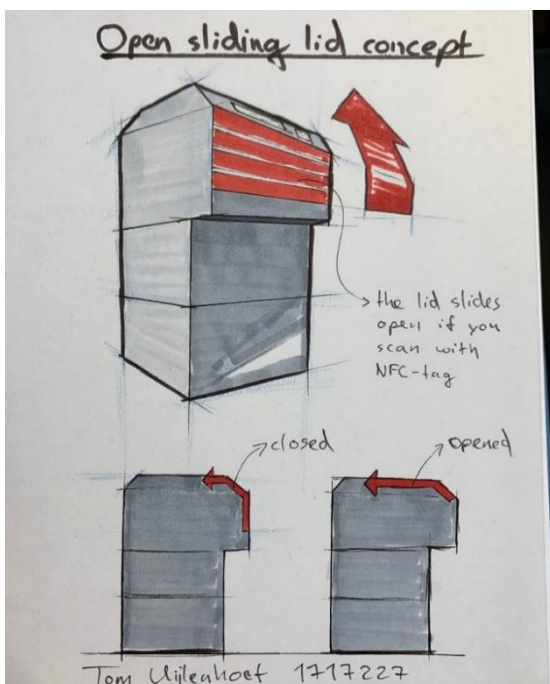 Open sliding lid concept
the lid slides
open if you
scan with
NFC-tag
closed
opened
Tom Uijlenhoet 1717227